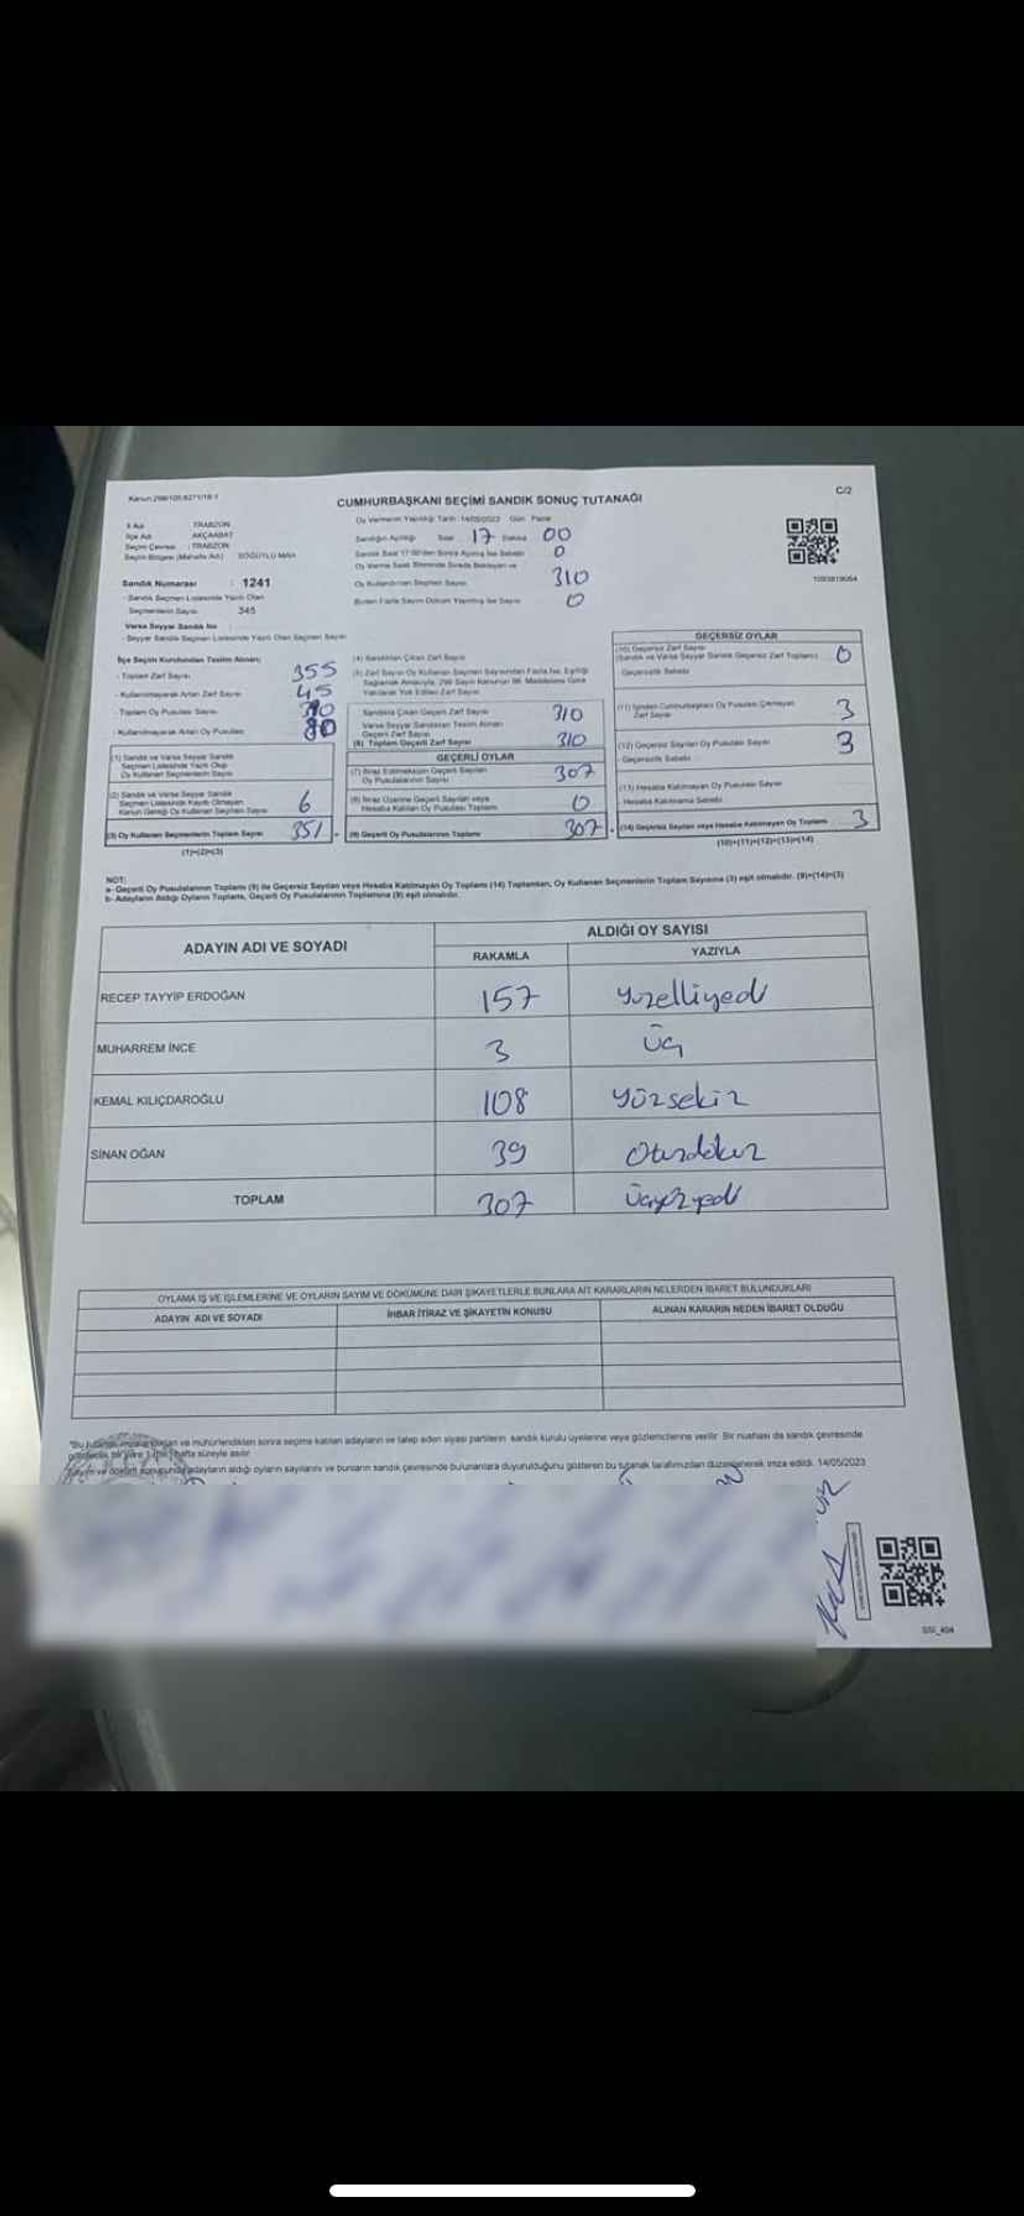 CUMHURBAŞKANI SEÇİMİ SANDIK SONUÇ TUTANAĞI
C/2
İl Adı : TRABZON
İlçe Adı : AKÇAABAT
Seçim Çevresi : TRABZON
Seçim Bölgesi (Mahalle Adı) : SÖĞÜTLÜ MAH
Oy Vermenin Yapıldığı Tarih: 14/05/2023 Gün: Pazar
Sandığın Açıldığı Saat 17 Dakika 00
0
310
0
Sandık Numarası : 1241
- Sandık Seçmen Listesinde Yazılı Olan
Seçmenlerin Sayısı 345
Varsa Seyyar Sandık No
- Seyyar Sandık Seçmen Listesinde Yazılı Olan Seçmen Sayısı
İlçe Seçim Kurulundan Teslim Alınan;
- Toplam Zarf Sayısı 355
- Kullanılmayarak Artan Zarf Sayısı 45
Toplam Oy Pusulası Sayısı
- Kullanılmayarak Artan Oy Pusulası
(1) Sandık ve Varsa Seyyar Sandık
Seçmen Listesinde Yazılı Olup
Oy Kullanan Seçmenlerin Sayısı
(2) Sandık ve Varsa Seyyar Sandık
Seçmen Listesinde Kayıtlı Olmayan
Kanun Gereği Oy Kullanan Seçmen Sayısı 6
(3) Oy Kullanan Seçmenlerin Toplam Sayısı 351
(1)+(2)=(3)
(4) Sandıktan Çıkan Zarf Sayısı
Sandıkta Çıkan Geçerli Zarf Sayısı 310
Varsa Seyyar Sandıktan Teslim Alınan
Geçerli Zarf Sayısı
(6) Toplam Geçerli Zarf Sayısı 310
GEÇERLİ OYLAR
(7) İtiraz Edilmeksizin Geçerli Sayılan
Oy Pusulalarının Sayısı 307
(8) İtiraz Üzerine Geçerli Sayılan veya
Hesaba Katılan Oy Pusulası Toplamı 0
(9) Geçerli Oy Pusulalarının Toplamı 307
GEÇERSİZ OYLAR
(10) Geçersiz Zarf Sayısı
(Sandık ve Varsa Seyyar Sandık Geçersiz Zarf Toplamı) 0
Geçersizlik Sebebi
(11) İçinden Cumhurbaşkanı Oy Pusulası Çıkmayan
Zarf Sayısı 3
(12) Geçersiz Sayılan Oy Pusulası Sayısı 3
- Geçersizlik Sebebi
(13) Hesaba Katılmayan Oy Pusulası Sayısı
Hesaba Katılmama Sebebi
(14) Geçersiz Sayılan veya Hesaba Katılmayan Oy Toplamı 3
(10)+(11)+(12)+(13)=(14)
NOT:
a- Geçerli Oy Pusulalarının Toplamı (9) ile Geçersiz Sayılan veya Hesaba Katılmayan Oy Toplamı (14) Toplamları, Oy Kullanan Seçmenlerin Toplam Sayısına (3) eşit olmalıdır. (9)+(14)=(3)
b- Adayların Aldığı Oyların Toplamı, Geçerli Oy Pusulalarının Toplamına (9) eşit olmalıdır.
ADAYIN ADI VE SOYADI
ALDIĞI OY SAYISI
RAKAMLA YAZIYLA
RECEP TAYYİP ERDOĞAN 157 yüzelliyedi
MUHARREM İNCE 3 Üç
KEMAL KILIÇDAROĞLU 108 yüzsekiz
SİNAN OĞAN 39 Otuzdokuz
TOPLAM 307 Üçyüzyedi
OYLAMA İŞ VE İŞLEMLERİNE VE OYLARIN SAYIM VE DÖKÜMÜNE DAİR ŞİKAYETLERLE BUNLARA AİT KARARLARIN NELERDEN İBARET BULUNDUKLARI
ADAYIN ADI VE SOYADI İHBAR İTİRAZ VE ŞİKAYETİN KONUSU ALINAN KARARIN NEDEN İBARET OLDUĞU
ve mühürlendikten sonra seçime katılan adayların ve talep eden siyasi partilerin sandık kurulu üyelerine veya gözlemcilerine verilir. Bir nüshası da sandık çevresinde
hafta süreyle asılır.
adayların aldığı oyların sayılarını ve bunların sandık çevresinde bulunanlara duyurulduğunu gösteren bu tutanak tarafımızdan düzenlenerek imza edildi. 14/05/2023